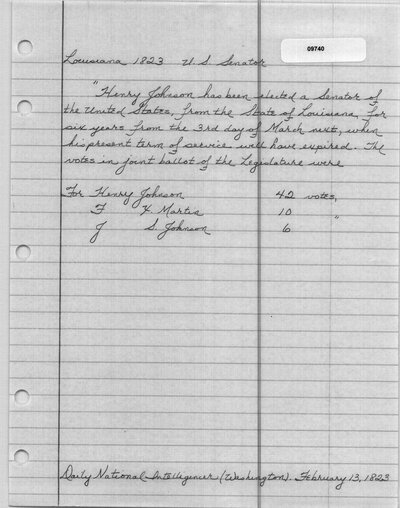 09740
Louisiana 1823 U S Senator
"Henry Johnson has been elected a Senator of
the United States, from the State of Louisiana for
six years from the 3rd day of March next, when
his present term of service will have expired. The
votes in joint ballot of the Legislature were
For Henry Johnson 42 votes,
F X. Martin 10 "
J S. Johnson 6
Daily National Intelligencer (Washington). February 13, 1823